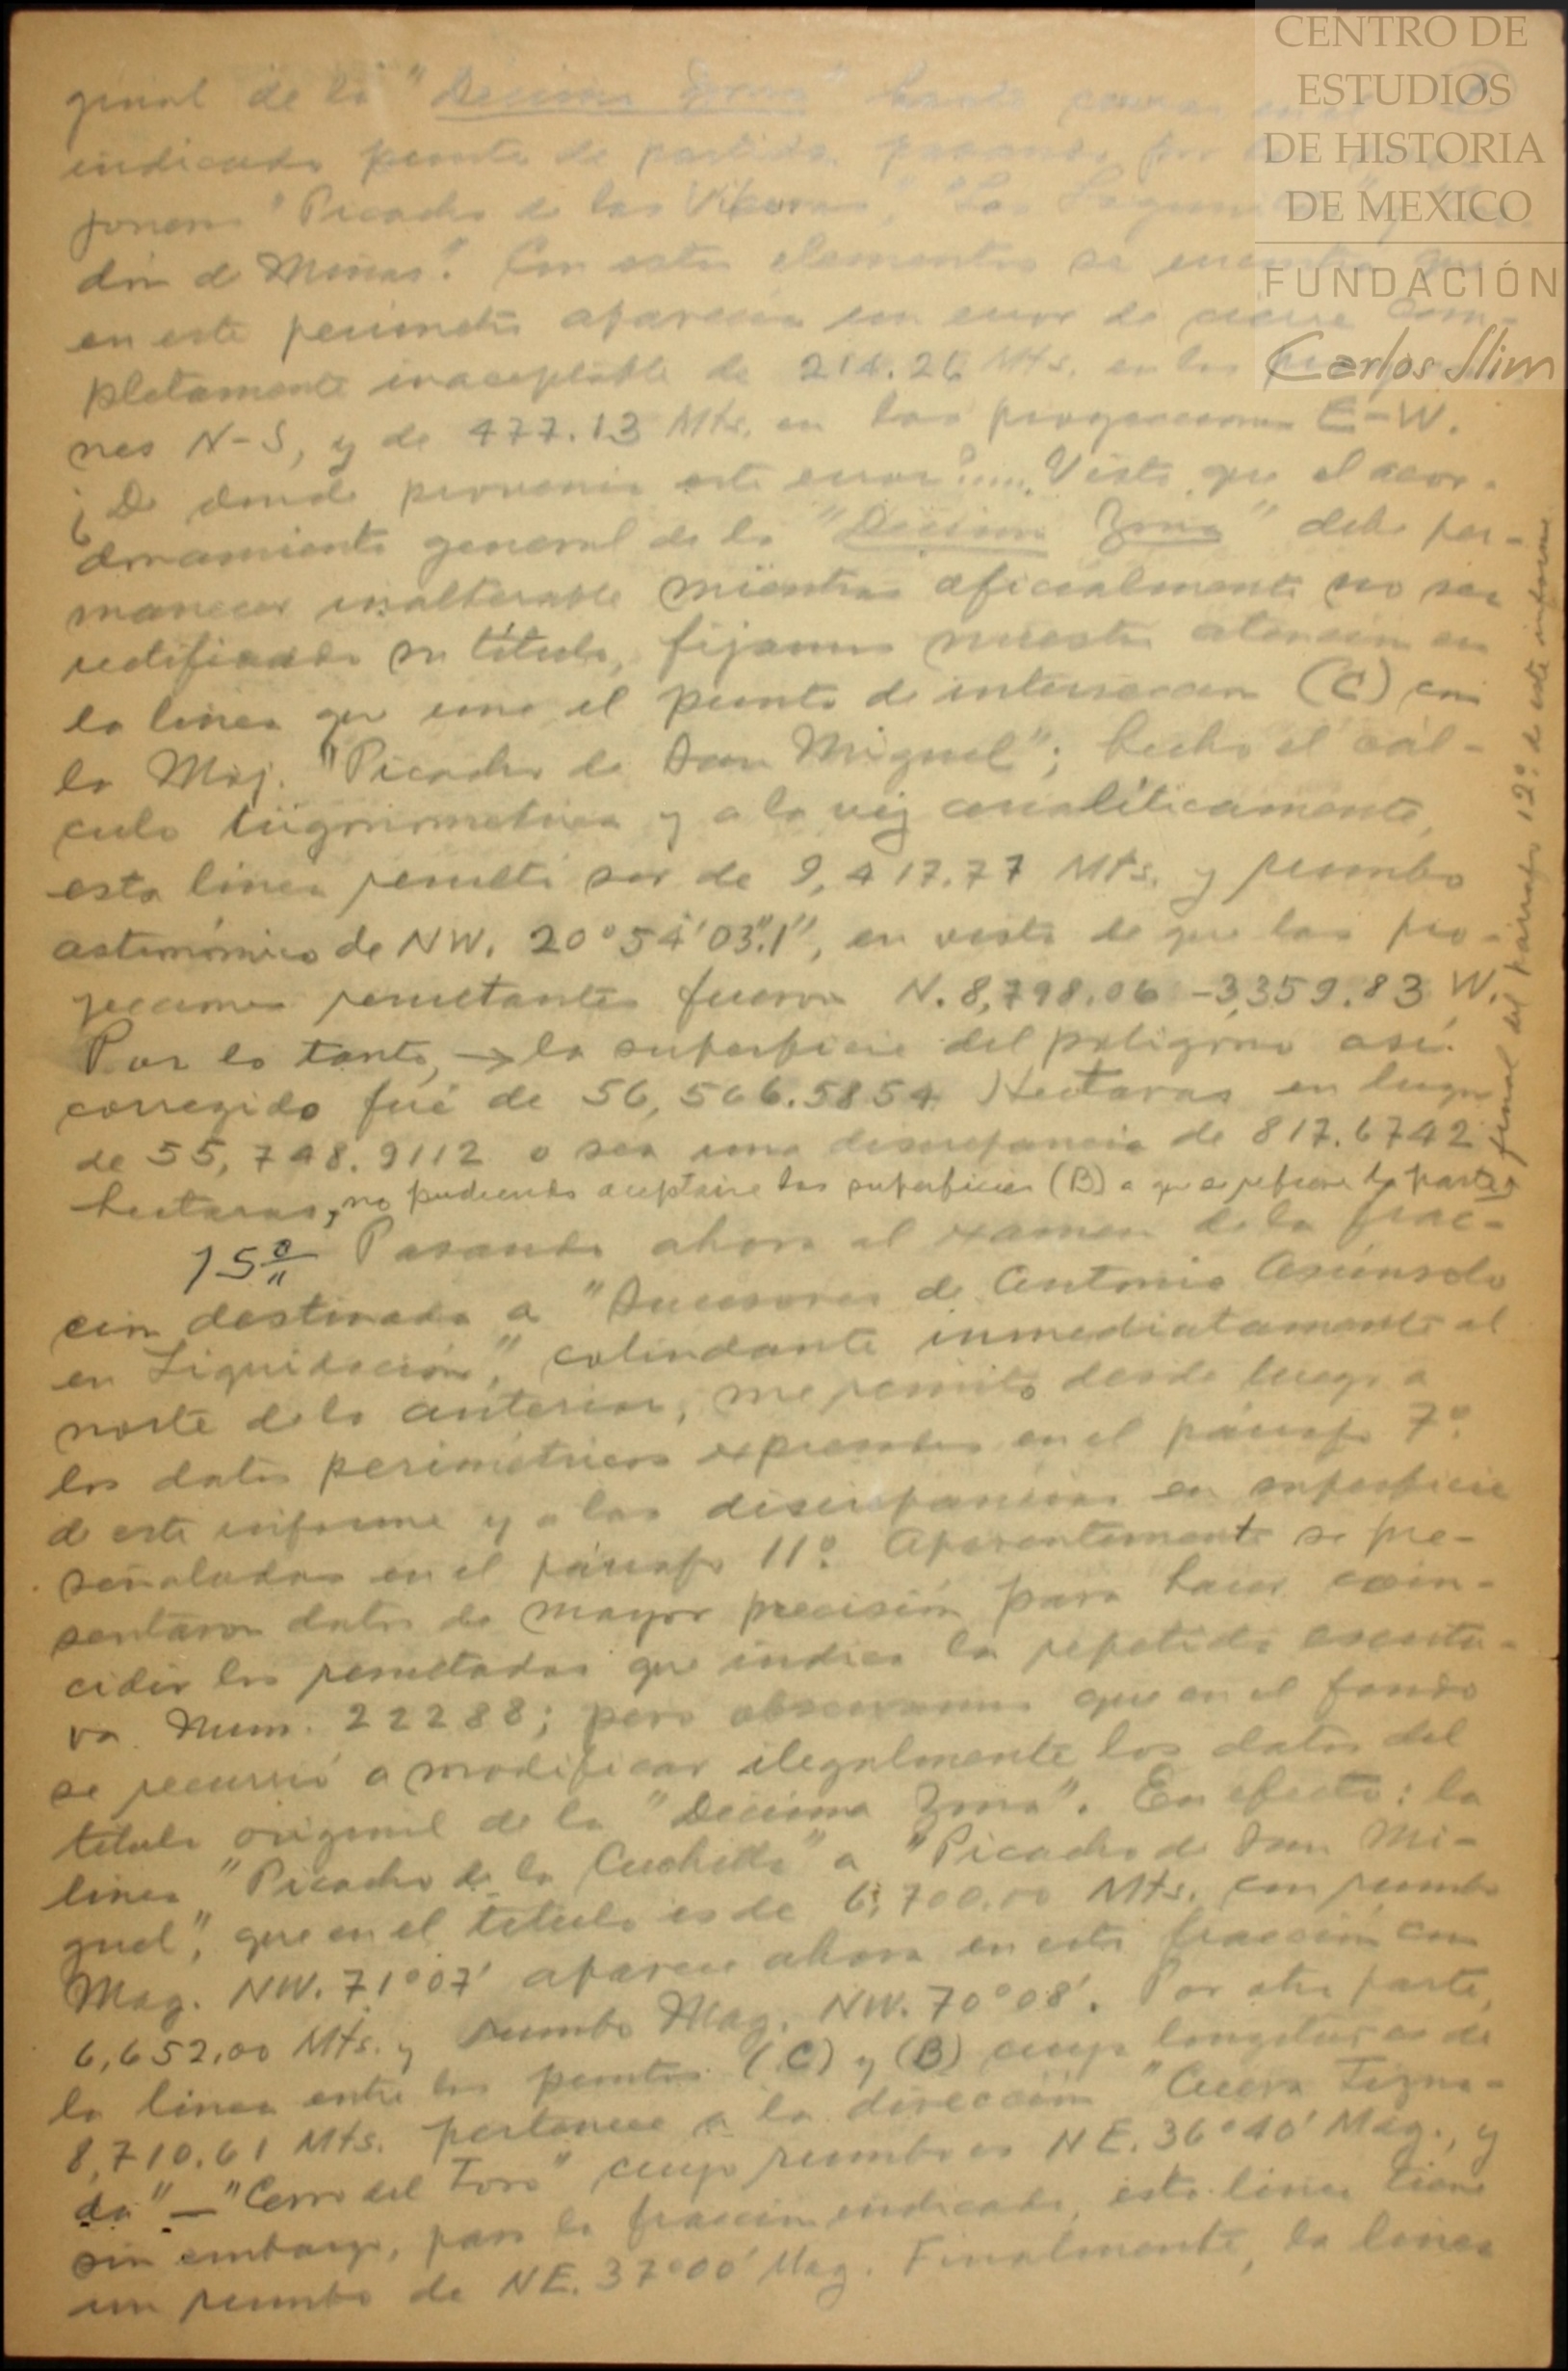 ginal de la "Decima Zona" hasta cerrar en el
indicado punto de partida, pasando por
jonera "Picacho de las Víboras", "Las
dón de Minas". Con estos elementos se encuentra que
en este perímetro aparecía un error de cierre com-
pletamente inaceptable de 214.26 Mts. en las
nes N-S, y de 477.13 Mts. en las proyecciones E-W.
¿De donde provenía este error?.... Visto que el acor-
donamiento general de la "Decima Zona" debe per-
manecer inalterable mientras oficialmente no sea
rectificado su título, fijamos nuestra atención en
la linea que une el punto de intersección (C) con
la Moj. "Picacho de San Miguel"; hecho el cál-
culo trigonometrica y a la vez analíticamente,
esta linea resultó ser de 9,417.77 Mts. y rumbo
astronómico de NW. 20°54'03".1", en vista de que las pro-
yecciones resultantes fueron N. 8,798.06 - 3,359.83 W.
Por lo tanto, → la superficie del polígono así
corregido fué de 56,566.5854 Hectaras en lugar
de 55,748.9112 o sea una discrepancia de 817.6742
hectaras, no pudiendo aceptarse las superficies (B) a que se refiere la parte
final del párrafo 12º de este informe
15º Pasando ahora al examen de la frac-
ción destinada a "Sucesores de Antonio Asúnsolo
en Liquidación", colindante inmediatamente al
norte de la anterior, me remito desde luego a
los datos perimétricos expresados en el párrafo 7º
de este informe y a las discrepancias en superficie
señaladas en el párrafo 11º. Aparentemente se pre-
sentaron datos de mayor precisión para hacer coin-
cidir los resultados que indica la repetida escritu-
ra Num. 22288; pero observamos que en el fondo
se recurrió a modificar ilegalmente los datos del
titulo original de la "Decima Zona". En efecto: la
linea "Picacho de la Cuchilla" a "Picacho de San Mi-
guel", que en el titulo es de 6,700.00 Mts. con rumbo
Mag. NW. 71°07' aparece ahora en esta fracción con
6,652.00 Mts. y rumbo Mag. NW. 70°08'. Por otra parte,
la linea entre los puntos (C) y (B) cuya longitud es de
8,710.61 Mts. pertenece a la dirección "Cueva Tizna-
da" — "Cerro del Toro" cuyo rumbo es NE. 36°40' Mag., y
sin embargo, para la fracción indicada, esta linea tiene
un rumbo de NE. 37°00' Mag. Finalmente, la linea
CENTRO DE
ESTUDIOS
DE HISTORIA
DE MEXICO
FUNDACIÓN
Carlos Slim